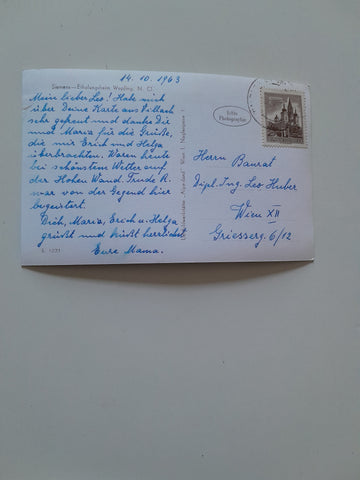 14. 10. 1963
Siemens-Erholungsheim Weyding, N. Ö.
Mein lieber Leo! Habe mich
über Deine Karte aus Villach
sehr gefreut und danke Dir
und Maria für die Grüße,
die mir Erich und Helga
überbrachten. Waren heute
bei schönstem Wetter auf
der Hohen Wand. Trude K.
war von der Gegend hier
begeistert.
Dich, Maria, Erich u. Helga
grüßt und küßt herzlichst
Eure Mama.
Echte
Photographie
Herrn Baurat
Dipl. Ing. Leo Huber
Wien XII
Griesserg. 6/12